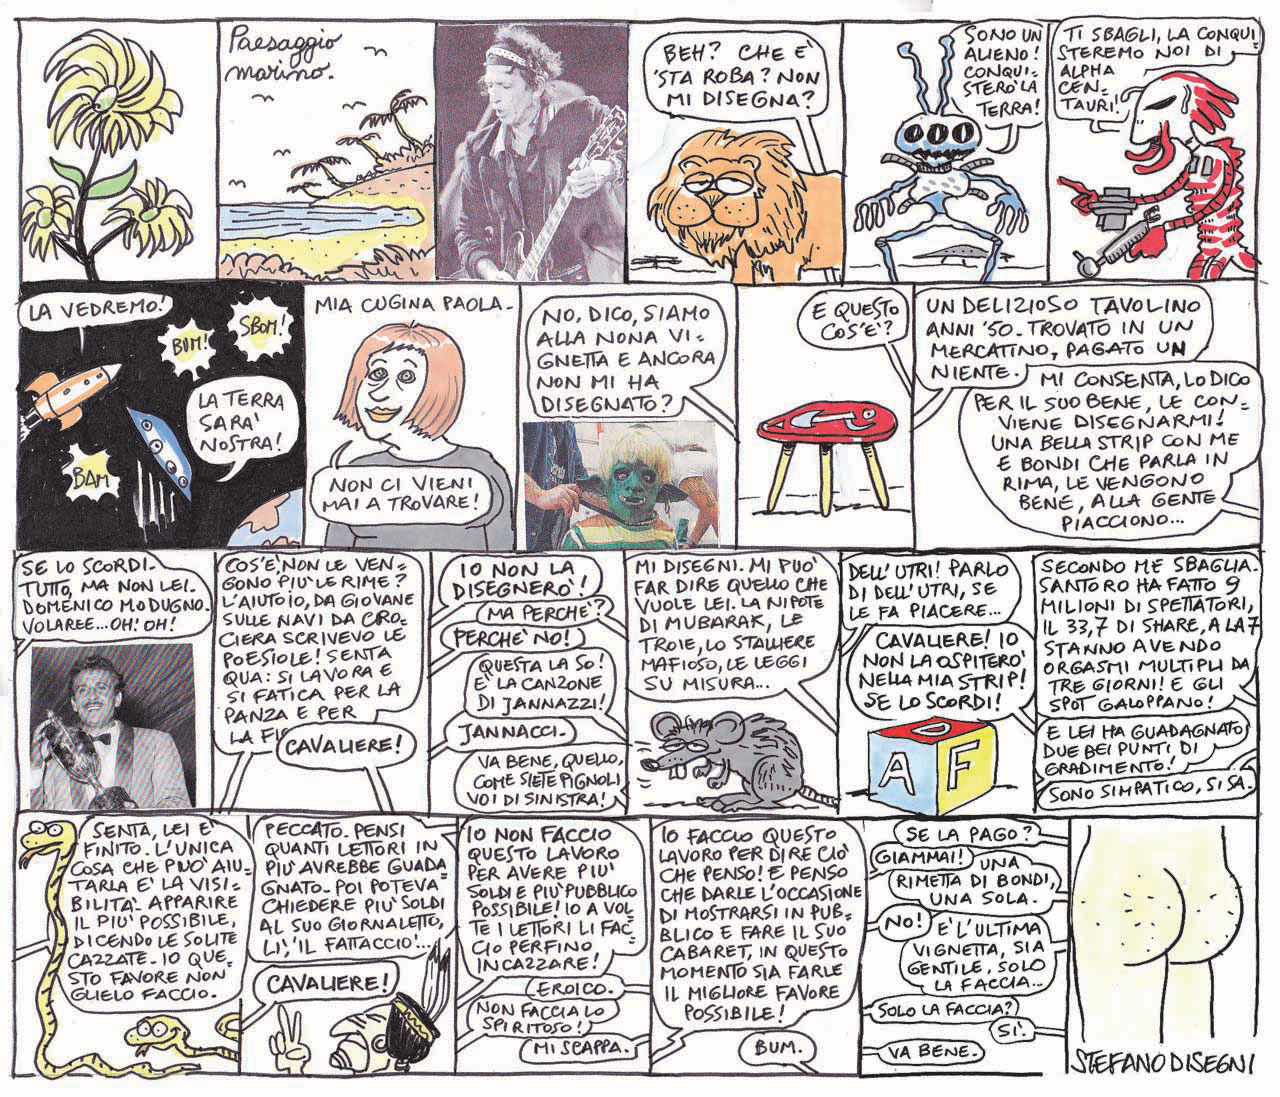 Paesaggio
marino.
BEH? CHE E'
'STA ROBA? NON
MI DISEGNA?
SONO UN
ALIENO!
CONQUI-
STERO' LA
TERRA!
TI SBAGLI, LA CONQUI
STEREMO NOI DI
ALPHA
CEN-
TAURI!
LA VEDREMO!
BUM!
SBOM!
BAM
LA TERRA
SARA'
NOSTRA!
MIA CUGINA PAOLA.
NON CI VIENI
MAI A TROVARE!
NO, DICO, SIAMO
ALLA NONA VI-
GNETTA E ANCORA
NON MI HA
DISEGNATO?
E QUESTO
COS'E'?
UN DELIZIOSO TAVOLINO
ANNI '50. TROVATO IN UN
MERCATINO, PAGATO UN
NIENTE.
MI CONSENTA, LO DICO
PER IL SUO BENE, LE CON-
VIENE DISEGNARMI!
UNA BELLA STRIP CON ME
E BONDI CHE PARLA IN
RIMA, LE VENGONO
BENE, ALLA GENTE
PIACCIONO...
SE LO SCORDI.
TUTTO, MA NON LEI.
DOMENICO MODUGNO.
VOLAREE...OH! OH!
COS'E', NON LE VEN-
GONO PIU' LE RIME?
L'AIUTO IO, DA GIOVANE
SULLE NAVI DA CRO-
CIERA SCRIVEVO LE
POESIOLE! SENTA
QUA: SI LAVORA E
SI FATICA PER LA
PANZA E PER
LA FI
CAVALIERE!
IO NON LA
DISEGNERO'!
MA PERCHE'?
PERCHE' NO!
QUESTA LA SO!
E' LA CANZONE
DI JANNAZZI!
JANNACCI.
VA BENE, QUELLO,
COME SIETE PIGNOLI
VOI DI SINISTRA!
MI DISEGNI. MI PUO'
FAR DIRE QUELLO CHE
VUOLE LEI. LA NIPOTE
DI MUBARAK, LE
TROIE, LO STALLIERE
MAFIOSO, LE LEGGI
SU MISURA...
DELL'UTRI! PARLO
DI DELL'UTRI, SE
LE FA PIACERE...
CAVALIERE! IO
NON LA OSPITERO'
NELLA MIA STRIP!
SE LO SCORDI!
A
F
SECONDO ME SBAGLIA.
SANTORO HA FATTO 9
MILIONI DI SPETTATORI,
IL 33,7 DI SHARE, A LA7
STANNO AVENDO
ORGASMI MULTIPLI DA
TRE GIORNI! E GLI
SPOT GALOPPANO!
E LEI HA GUADAGNATO
DUE BEI PUNTI DI
GRADIMENTO!
SONO SIMPATICO, SI SA.
SENTA, LEI E'
FINITO. L'UNICA
COSA CHE PUO' AIU-
TARLA E' LA VISI-
BILITA'. APPARIRE
IL PIU' POSSIBILE,
DICENDO LE SOLITE
CAZZATE. IO QUE-
STO FAVORE NON
GLIELO FACCIO.
PECCATO. PENSI
QUANTI LETTORI IN
PIU' AVREBBE GUADA
GNATO. POI POTEVA
CHIEDERE PIU' SOLDI
AL SUO GIORNALETTO,
LI', IL FATTACCIO!...
CAVALIERE!
IO NON FACCIO
QUESTO LAVORO
PER AVERE PIU'
SOLDI E PIU' PUBBLICO
POSSIBILE! IO A VOL-
TE I LETTORI LI FAC-
CIO PERFINO
INCAZZARE!
EROICO.
NON FACCIA LO
SPIRITOSO!
MI SCAPPA.
IO FACCIO QUESTO
LAVORO PER DIRE CIO'
CHE PENSO! E PENSO
CHE DARLE L'OCCASIONE
DI MOSTRARSI IN PUB-
BLICO E FARE IL SUO
CABARET, IN QUESTO
MOMENTO SIA FARLE
IL MIGLIORE FAVORE
POSSIBILE!
BUM.
SE LA PAGO?
GIAMMAI!
UNA
RIMETTA DI BONDI,
UNA SOLA.
NO!
E' L'ULTIMA
VIGNETTA, SIA
GENTILE, SOLO
LA FACCIA...
SOLO LA FACCIA?
SI'.
VA BENE.
STEFANO DISEGNI